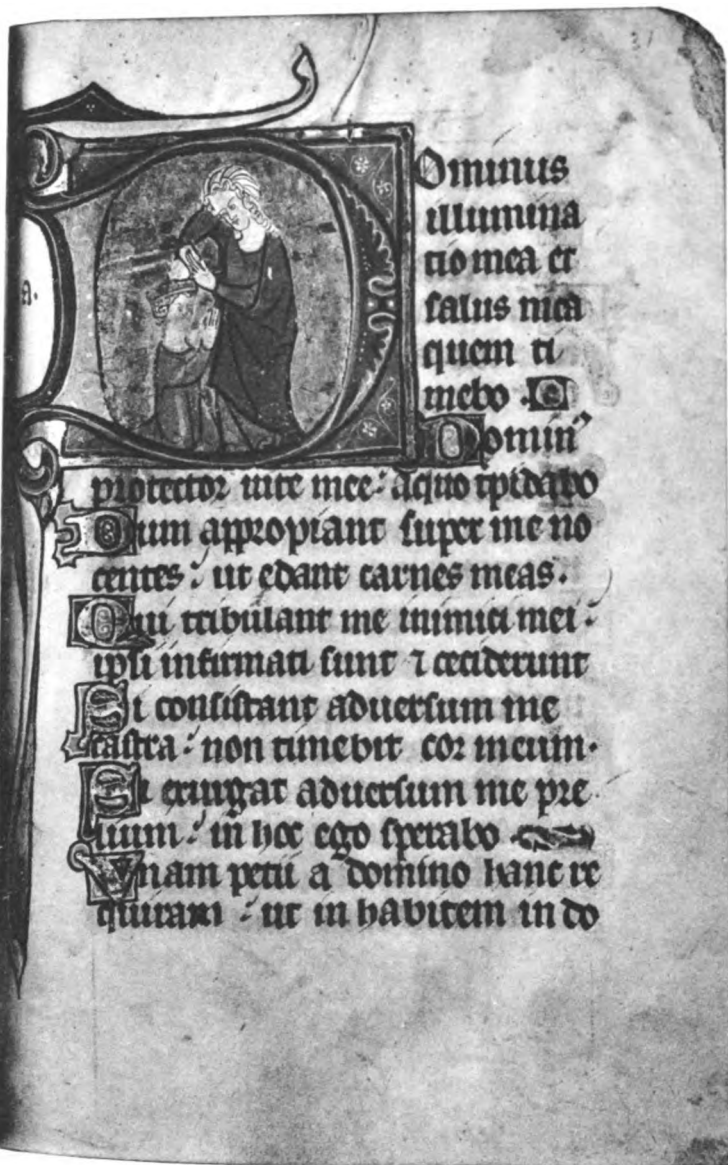 31
Ominus
illumina
tio mea et
salus mea
quem ti
mebo .
Domin⁹
protector uite mee : aquo tpidabo
Dum appropiant super me no
centes : ut edant carnes meas .
Qui tribulant me inimici mei :
ipsi infirmati sunt ⁊ ceciderunt
Si consistant aduersum me
castra : non timebit cor meum .
Si exurgat aduersum me pre
lium : in hoc ego sperabo
Vnam petii a domino hanc re
quiram : ut in habitem in do